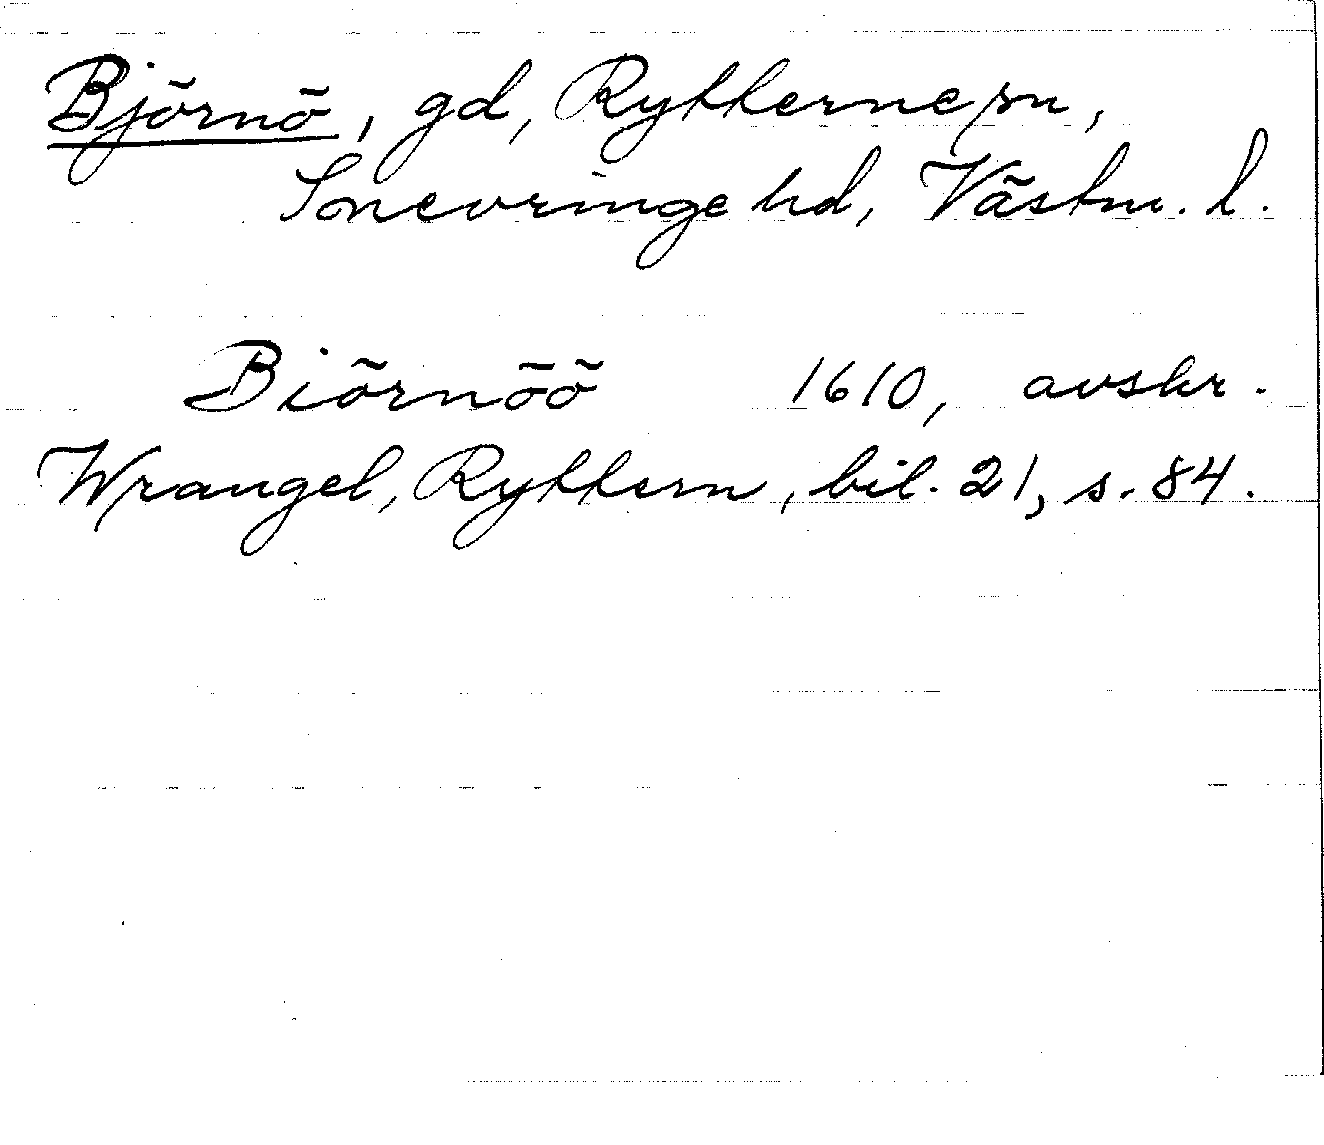 Björnö, gd, Rytterne sn,
Snevringe hd, Västm. l.
Biörnöö 1610, avskr.
Wrangel, Ryttern, bil. 21, s. 84.